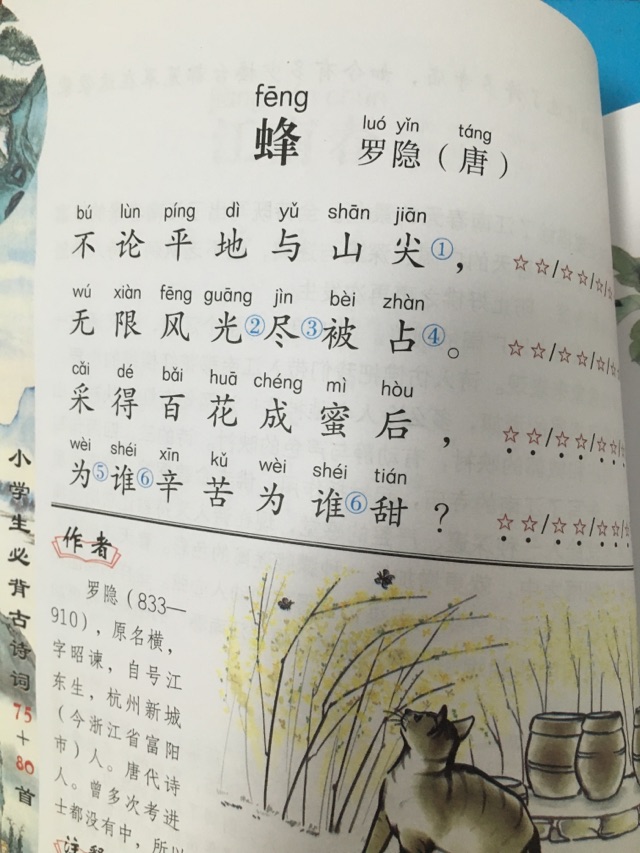 fēng
蜂
luó yǐn táng
罗隐（唐）
bú lùn píng dì yǔ shān jiān
不论平地与山尖①，☆☆/☆☆/☆☆
wú xiàn fēng guāng jìn bèi zhàn
无限风光②尽③被占④。☆☆/☆☆/☆☆
cǎi dé bǎi huā chéng mì hòu
采得百花成蜜后，☆☆/☆☆/☆☆
wèi shéi xīn kǔ wèi shéi tián
为⑤谁⑥辛苦为谁⑥甜？☆☆/☆☆/☆☆
作者
罗隐（833—
910），原名横，
字昭谏，自号江
东生，杭州新城
（今浙江省富阳
市）人。唐代诗
人。曾多次考进
士都没有中，所以
注释
小学生必背古诗词75+80首